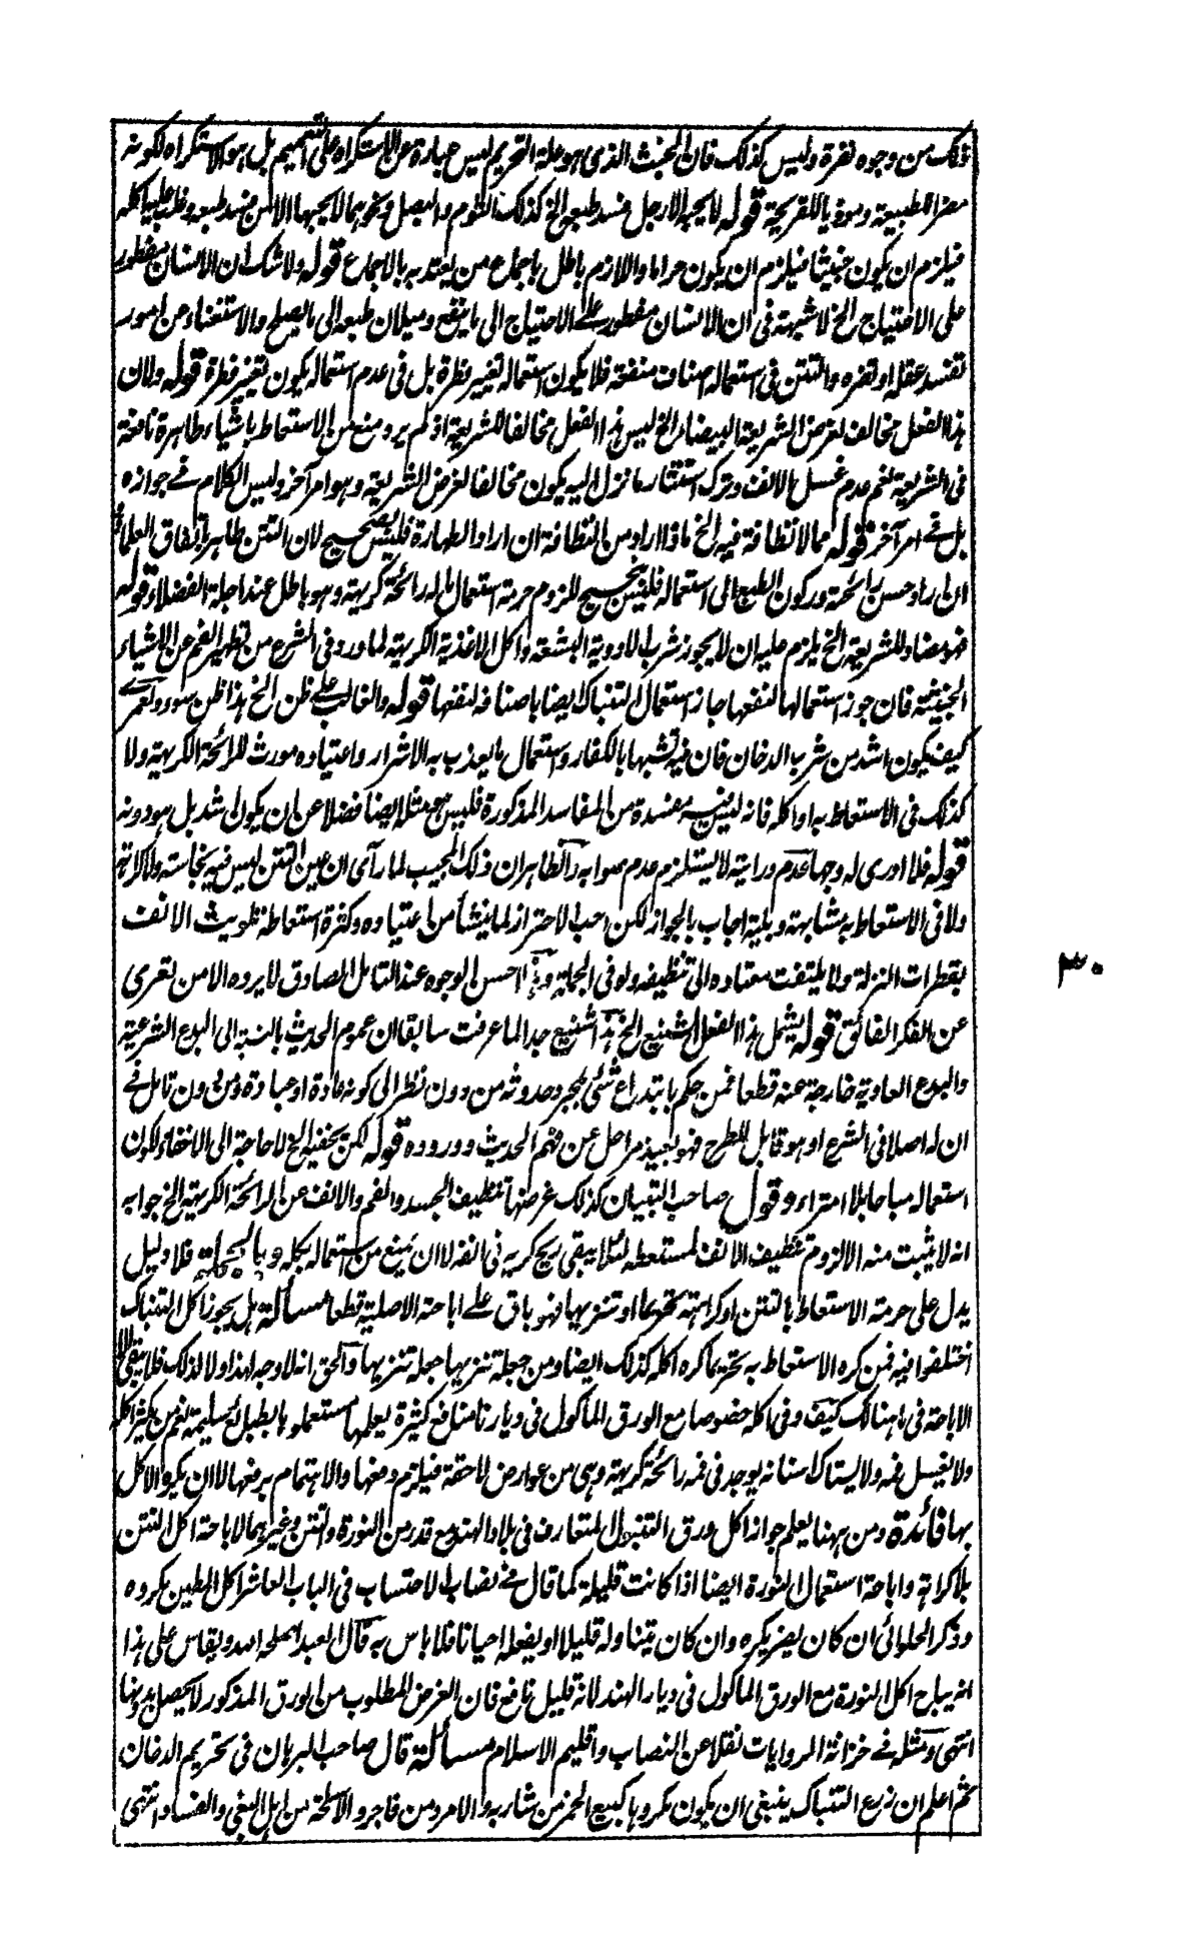 ذلك من وجوه نفرة وليس كذلك فان الخبث الذى هو علة التحريم ليس عبارة عن الاستكراه على التعميم بل هو الاستكراه لكونه
مضرا للطبيعة وموذيا للقريحة قوله لا يحبه الا رجل فسد طبعه الخ كذلك الثوم والبصل ونحوهما لا يحبها الا من فسد طبعه وغلب عليه اكله
فيلزم ان يكون خبيثا فيلزم ان يكون حراما واللازم باطل باجماع من يعتد به بالاجماع قوله ولا شك ان الانسان مفطور
على الاحتياج الخ لا شبهة فى ان الانسان مفطور على الاحتياج الى ما ينفع وميلان طبعه الى ما يصلح والاستغناء من امور
تفسد عقله او تضره والتتن فى استعماله اصناف منفعة فلا يكون استعماله تغيير فطرة بل فى عدم استعماله يكون تغيير فطرة قوله ولان
هذا الفعل مخالف لغرض الشريعة البيضاء الخ ليس هذا الفعل مخالفا للشريعة اذ لم يرو منع من الاستعاط باشياء طاهرة نافعة
فى الشريعة نعم عدم غسل الانف وترك استنثار ما نزل اليه يكون مخالفا لغرض الشريعة وهو امر آخر وليس الكلام فے جوازه
بل فے امر آخر قوله مما لا نظافة فيه الخ ماذا اراد من النظافة ان اراد الطهارة فليس بصحيح لان التتن طاهر باتفاق العلماء
ان اراد حسن رائحة وركون الطبع الى استعماله فليس بصحيح للزوم حرمة استعمال ما له رائحة كريهة وهو باطل عند اجلة الفضلاء قوله
فهو مضاد للشريعة الخ يلزم عليه ان لا يجوز شرب الادوية البشعة واكل الاغذية الكريهة لما ورد فى الشرع من تطهير الفم عن الاشياء
الخبيثة فان جوز استعمالها لنفعها جاز استعمال التنباك ايضا باصنافه لنفعها قوله والغالب علے ظن الخ هذا ظن سوء ولعمرے
كيف يكون اشد من شرب الدخان فان فيه تشبها بالكفار واستعمال ما يعذب به الاشرار واعتياده مورث للرائحة الكريهة ولا
كذلك فى الاستعاط به او اكله فانه ليس فيه مفسدة من المفاسد المذكورة فليس هو مثله ايضا فضلا عن ان يكون اشد بل هو دونه
قوله فلا ادرى له وجها عدم درايته لا يستلزم عدم صوابه والظاهر ان ذلك المجيب لما رآى ان عين التتن ليس فيه نجاسة ولا كراهة
ولا فى الاستعاط به مشابهة وبلية اجاب بالجواز لكن احب الاحتراز لما ينشأ من اعتياده وكثرة استعاطه تلويث الانف
بقطرات النزلة ولا يلتفت معتاده الى تنظيفه ولو فى الجملة وهذا احسن الوجوه عند التامل الصادق لا يرده الا من تعرى
عن الفكر الفائق قوله يشمل هذا الفعل الشنيع الخ هذا شنيع جدا لما عرفت سابقا ان عموم الحديث بالنسبة الى البدع الشرعية
والبدع العادية خارجة عنه قطعا فمن حكم بابتداع شئ بمجرد حدوثه من دون نظر الى كونه عادة او عبادة ومن دون تامل فے
ان له اصلا فى الشرع او هو قابل للطرح فهو بعيد مراحل عن فهم الحديث ووروده قوله لكن يخفيه الخ لا حاجة الى الاخفاء لكون
استعماله مباحا بلا امتراء وقول صاحب التبيان كذلك غرضها تنظيف الجسد والفم والانف عن الرائحة الكريهة الخ جوابه
انه لا يثبت منه الا لزوم تنظيف الانف لمستعطه لئلا يبقى ريح كريه فى انفه لا ان يمنع من استعماله بكله وبالجملة فلا دليل
يدل على حرمة الاستعاط بالتتن او كراهته تحريما او تنزيها فهو باق علے اباحته الاصلية قطعا مسألة هل يجوز اكل التنباك
اختلفوا فيه فمن كره الاستعاط به تحريما كره اكله كذلك ايضا ومن جعله تنزيها جعله تنزيها والحق انه لا وجه لهذا ولا لذلك فلا يبقى الا
الاباحة فى ما هنالك كيف وفى اكله خصوصا مع الورق الماكول فى ديارنا منافع كثيرة يعلمها مستعملوه بالطبائع السليمة نعم من يكثر اكله
ولا يغسل فمه ولا يستاك اسنانه يوجد فى فمه رائحة كريهة وهى من عوارض لاحقة فيلزم دفعها والاهتمام برفعها لا ان يكره الاكل
بها فائدة ومن ههنا يعلم جواز اكل ورق التنبول المتعارف فى بلاد الهند مع قدر من النورة والتتن وغيرهما لاباحة اكل التتن
بلا كراهة واباحة استعمال النورة ايضا اذا كانت قليلة كما قال فے نصاب الاحتساب فى الباب العاشر اكل الطين مكروه
وذكر الحلوائى ان كان يضر يكره وان كان يتناوله قليلا او يفعله احيانا فلا باس به قال العبد اصلحه الله ويقاس على هذا
انه يباح اكل النورة مع الورق الماكول فى ديار الهند لانه قليل نافع فان الغرض المطلوب من الورق المذكور لا يحصل بدونها
انتهى ومثله فے خزانة الروايات نقلا عن النصاب واقليم الاسلام مسألة قال صاحب البرهان فى تحريم الدخان
ثم اعلم ان زرع التنباك ينبغى ان يكون مكروها كبيع الخمر من شاربه والامرد من فاجر والاسلحة من اهل البغى والفساد انتهى
٣٠